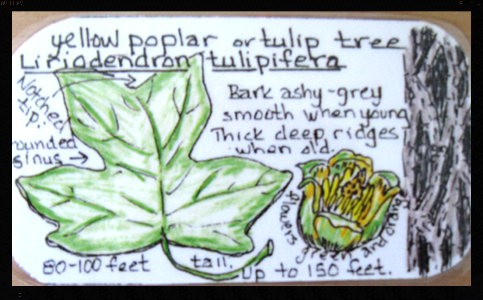 yellow poplar or tulip tree
Liriodendron tulipifera
Notched tip.
rounded sinus →
Bark ashy-grey
smooth when young
Thick deep ridges
when old.
flowers green and orange
80-100 feet tall.
Up to 150 feet.